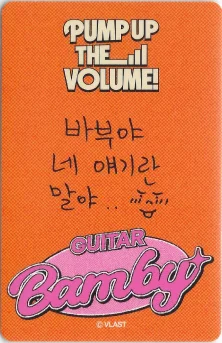 PUMP UP
THE
VOLUME!
바부야
네 얘기란
말야..
GUITAR
Bamby
© VLAST